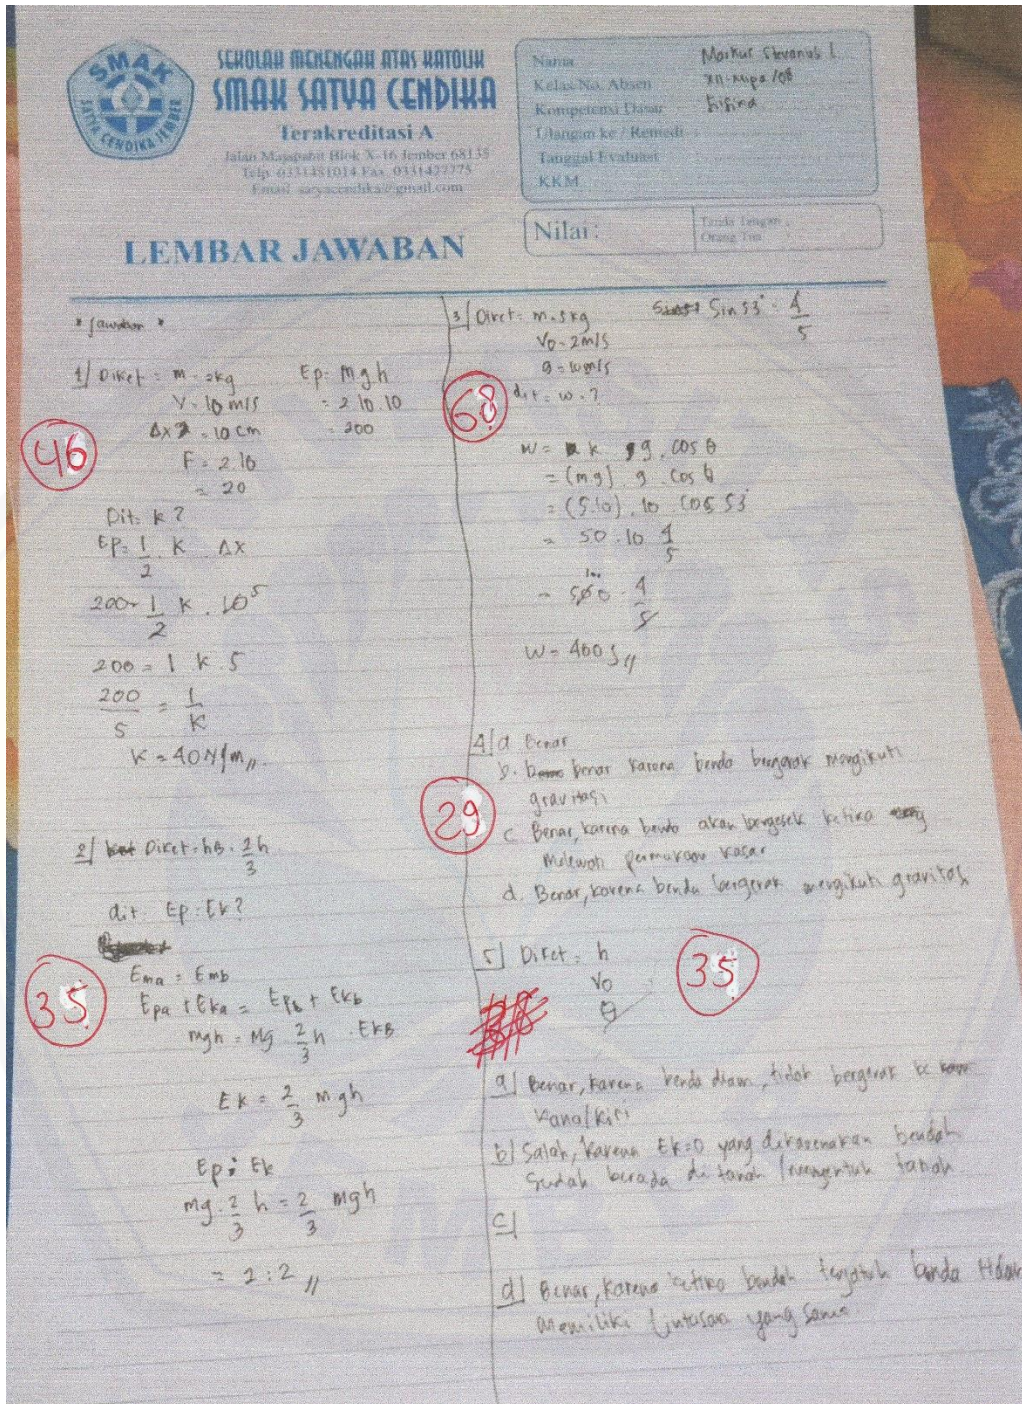 SMAK
SATYA CENDIKA JEMBER
SEKOLAH MENENGAH ATAS KATOLIK
SMAK SATYA CENDIKA
Terakreditasi A
Jalan Majapahit Blok X-16 Jember 68135
Telp. 0331481014 Fax. 0331427775
Email: satyacendika@gmail.com
LEMBAR JAWABAN
Nama Markus Stevanus L
Kelas/No. Absen XII-Mipa/08
Kompetensi Dasar Fisika
Ulangan ke / Remedi
Tanggal Evaluasi
KKM
Nilai:
Tanda Tangan
Orang Tua
* Jawaban *
1/ Diket = m = 2kg Ep = m g h
V = 10 m/s = 2.10.10
Δx = 10 cm = 200
46
F = 2.10
= 20
Dit: k?
Ep = 1/2 . K . Δx
200 = 1/2 K . 10 5
200 = 1 k . 5
200/5 = 1/K
K = 40 N/m //
2/ Diket = hB = 2/3 h
dit Ep : Ek?
Ema = Emb
35
Epa + Eka = Epb + Ekb
mgh = Mg 2/3 h . EkB
Ek = 2/3 mgh
Ep : Ek
mg . 2/3 h = 2/3 mgh
= 2 : 2 //
3/ Diket = m = 5 kg Sin 53° = 4/5
Vo = 2 m/s
g = 10 m/s
68
dit = w = ?
W = k g . cos θ
= (mg) . g . cos θ
= (5.10) . 10 . cos 53°
= 50 . 10 4/5
= 500 100 . 4/5
W = 400 J //
4/ a Benar
b. benar karena benda bergerak mengikuti
gravitasi
29
c Benar, karena benda akan bergesek ketika
melewati permukaan kasar
d. Benar, karena benda bergerak mengikuti gravitasi
5/ Diket = h
Vo
θ
35
a/ Benar, karena benda diam, tidak bergerak ke
kanan/kiri
b/ Salah, karena Ek=0 yang dikarenakan bendah
sudah berada di tanah / menyentuh tanah
c/
d/ Benar, karena ketika bendah terjatuh benda tidak
memiliki lintasan yang sama